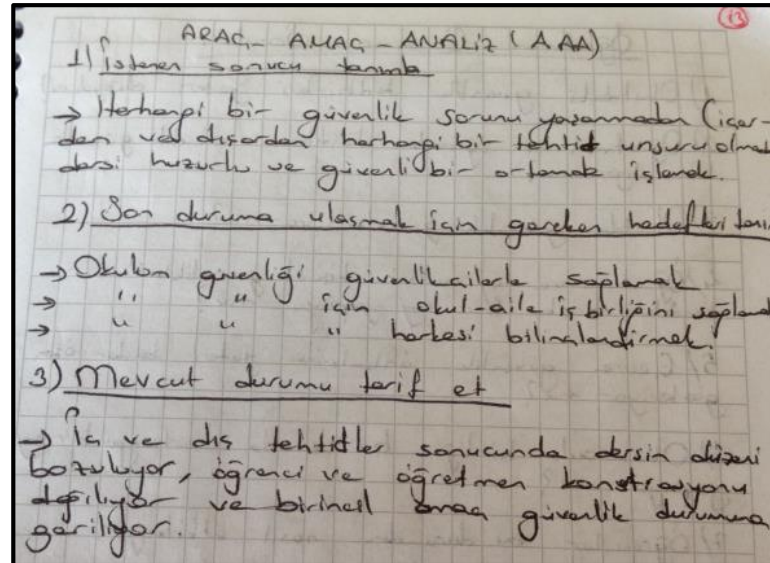 13
ARAÇ - AMAÇ - ANALİZ (AAA)
1) İstenen sonucu tanımla
→ Herhangi bir güvenlik sorunu yaşanmadan (içer-
den ve dışardan herhangi bir tehtid unsuru olmad
dersi huzurlu ve güvenli bir ortamda işlemek.
2) Son duruma ulaşmak için gereken hedefleri tanı
→ Okulun güvenliği güvenlikçilerle sağlamak
→ " " için okul-aile iş birliğini sağlamak
→ " " " herkesi bilinçlendirmek.
3) Mevcut durumu tarif et
→ İç ve dış tehtidler sonucunda dersin düzeni
bozuluyor, öğrenci ve öğretmen konstrasyonu
ve birincil amaç güvenlik durumuna